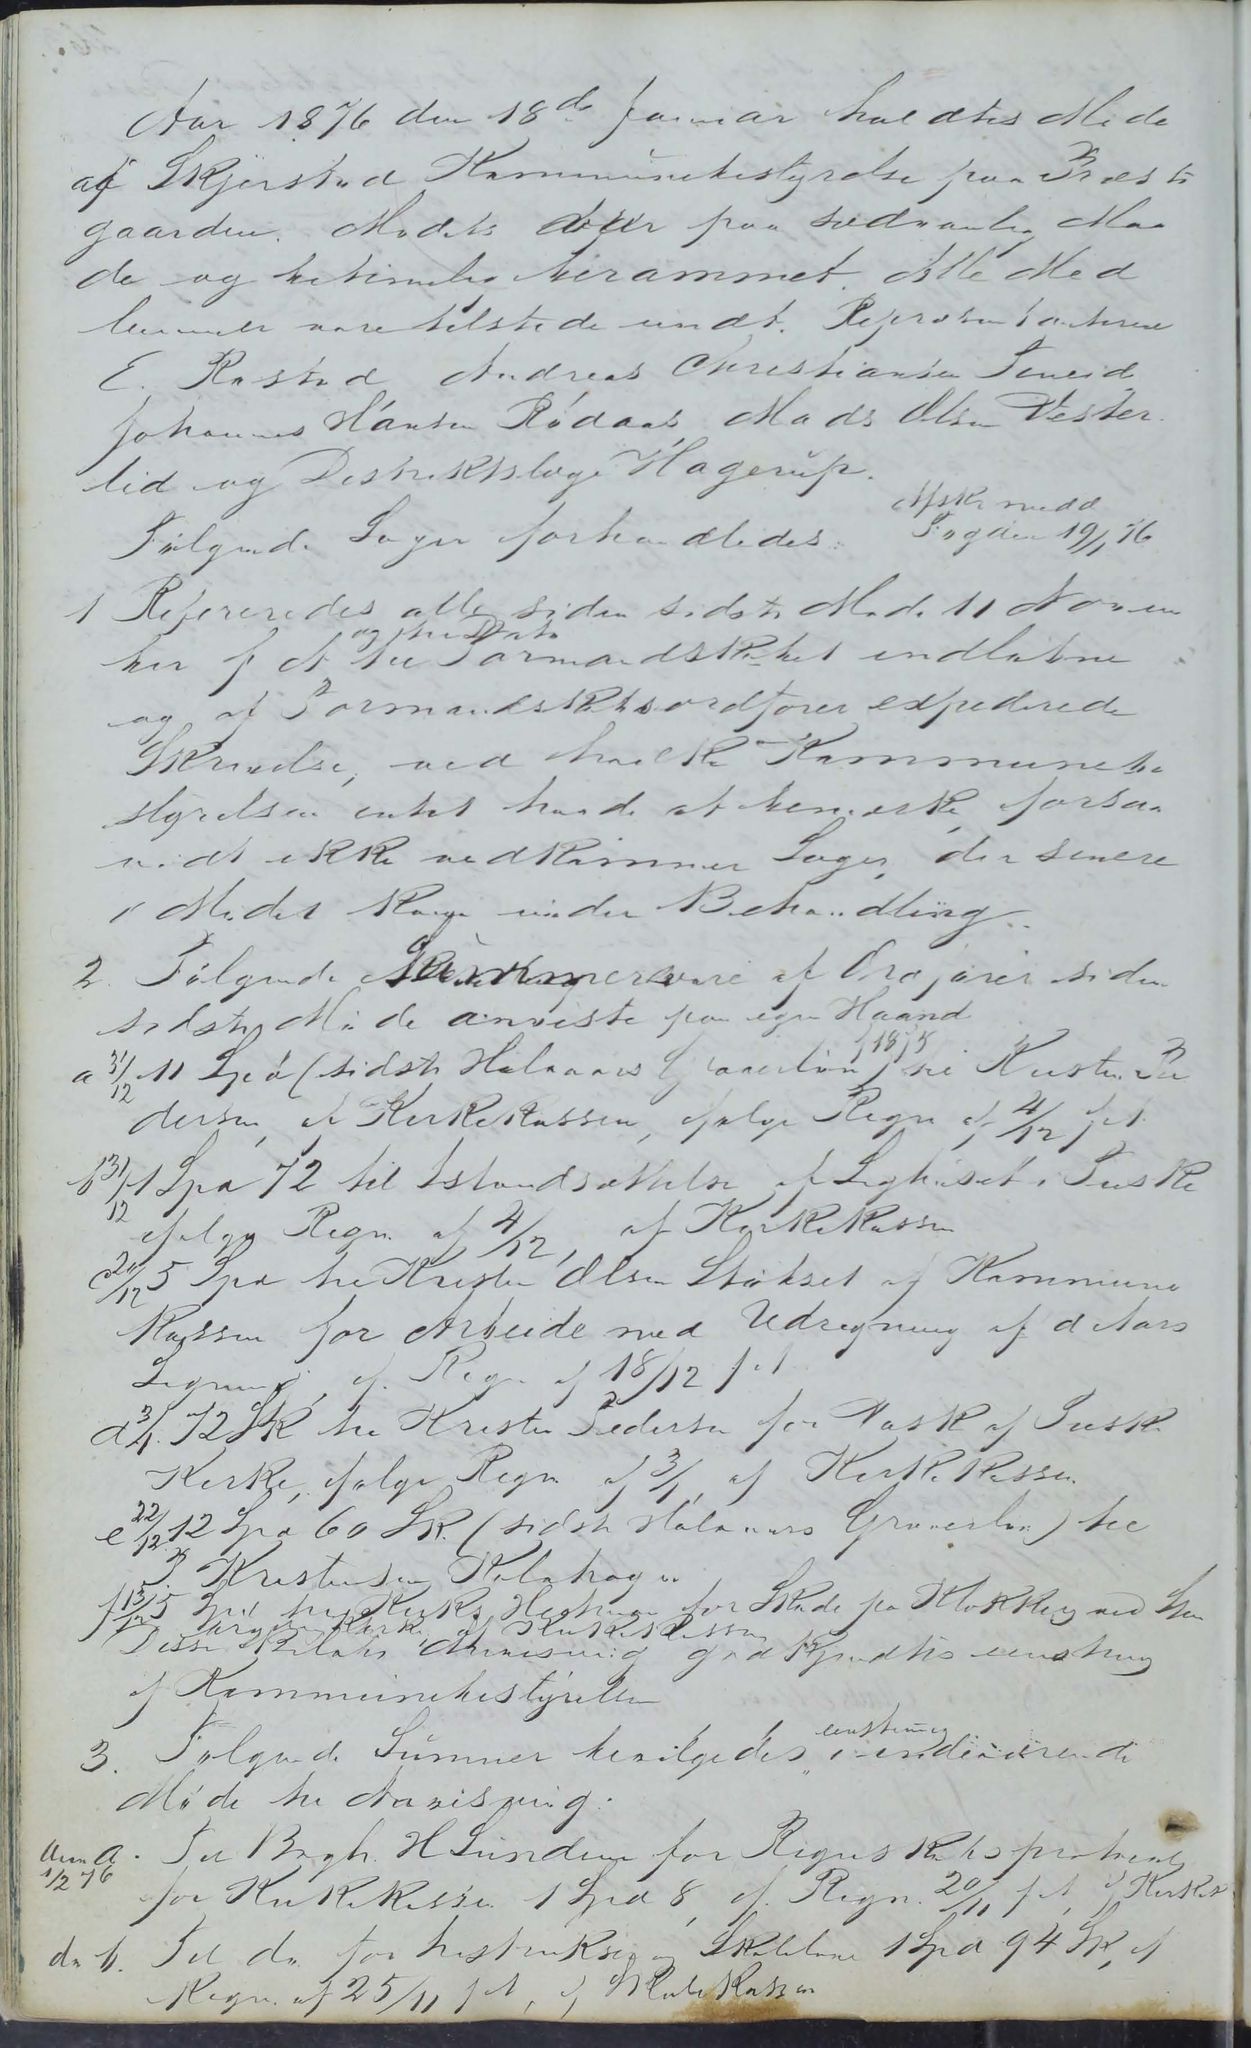 Aar 1876 den 18de Januar holdtes Møde
af Skjerstad Kommunebestyrelse paa Præste
gaarden. Mødet var paa sædvanlig Maa
de og betimelig berammet. Alle Med
lemmer vare tilstede undt. Repræsentanterne
E. Rastad Andreas Christiansen
Johannes Hansen Rödaas Mads Olsen Vester
lid og Distriktslæge Hagerup.
Afskr medd
Følgende Sager forhandledes:
Fogden 19/1 76
1 Refereredes alle siden sidste Møde 11 Novem
og til Dato
ber f A til Formandskabet indløbne
og af Formandskabsordfører expederede
Skrivelser, ved hvilke Kommunebe
styrelsen intet havde at bemærke, forsaa
vidt ikke vedkommer Sager, der senere
i Mødet kom under Behandling.
2. Følgende Summer vare af Ordfører siden
sidste Møde anviste paa egen Haand
a 31/12 11 Spd (sidste Halvaars Graverløn f 1875) til Kristen Pe
dersen, af Kirkekassen, ifølge Regn af 4/12 f A.
b 31/12 1 Spd 72 til Istandsættelse af Lighuset i
ifølge Regn. af 4/12, af Kirkekassen
c 20/12 5 Spd til Kristen Olsen af Kommune
kassen for Arbeide med Udregning af d Aars
Ligning, if. Regn af 18/12 f A
d 3/1. 72 Sk til Kristen Pedersen for Vask af
Kirke, ifølge Regn af 3/1, af Kirkekassen.
e 22/12 12 Spd 60 Sk. (sidste Halvaars Graverløn) til
Kristensen
f 13/12 5 Spd til Kirke for Skade paa
Kirke af Kirkekassen
Disse Beløbs Anvisning godkjendtes eenstemmig
af Kommunebestyrelsen
3. Følgende Summer bevilgedes eenstemmig i indeværende
Møde til Anvisning:
Anv 1/2 76 a. Til Bogh. H Lindem for Regnskabsprotocol
for Kirkekassen 1 Spd 8, if. Regn. 20/11 f A, af Kirkek
do b. Til do for Instruxer og Skolelove 1 Spd 94 Sk, if
Regn. af 25/11 f A, af Skolekassen